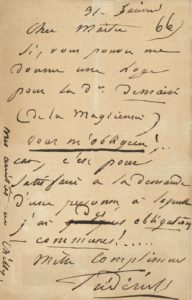 31 Janvier
66
Cher Maître
Si, vous pouvez me
donner une Loge
pour la Dre demain
(de la Magicienne)
vous m'obligerez!
car, c'est pour
satisfaire à la demande
d'une personne à laquelle
j'ai obligation
commune!.....
Mille Complimens